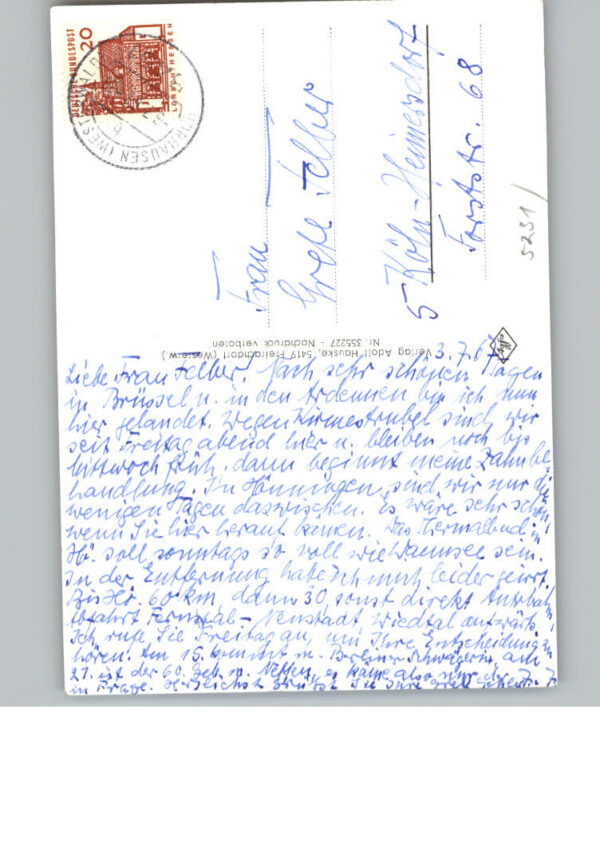 DEUTSCHE BUNDESPOST
20
LORSCH HESSEN
HAUSEN (WESTERWALD)
Frau
Grete Felber
5 Köln-Heimersdorf
Forststr. 68
5231/
Verlag Adolf Hauske, 5419 Freirachdorf (Westerw.)
Nr. 355227 - Nachdruck verboten
3.7.67
Liebe Frau Felber! Nach sehr schönen Tagen
in Brüssel u. in den Ardennen bin ich nun
hier gelandet. Wegen Kirmestrubel sind wir
seit Freitag abend hier u. bleiben noch bis
Mittwoch früh, dann beginnt meine Zahnbe-
handlung. In Hönningen sind wir nur die
wenigen Tagen dazwischen. Es wäre sehr schön
wenn Sie hier herauf kämen. Das Thermalbad in
Hö. soll sonntags so voll wie Wannsee sein.
In der Entfernung habe ich mich leider geirrt.
Bis Hö. 60 km, dann 30, sonst direkt Autobahn
bfahrt Fernthal - Neustadt, Wiedtal aufwärts.
Ich rufe Sie Freitag an, um Ihre Entscheidung zu
hören. Am 15. kommt m. Berliner Schwägerin, am
21. ist der 60. Geb. m. Neffen, es käme also nur der
in Frage. Herzlichst grüßt Sie Ihre